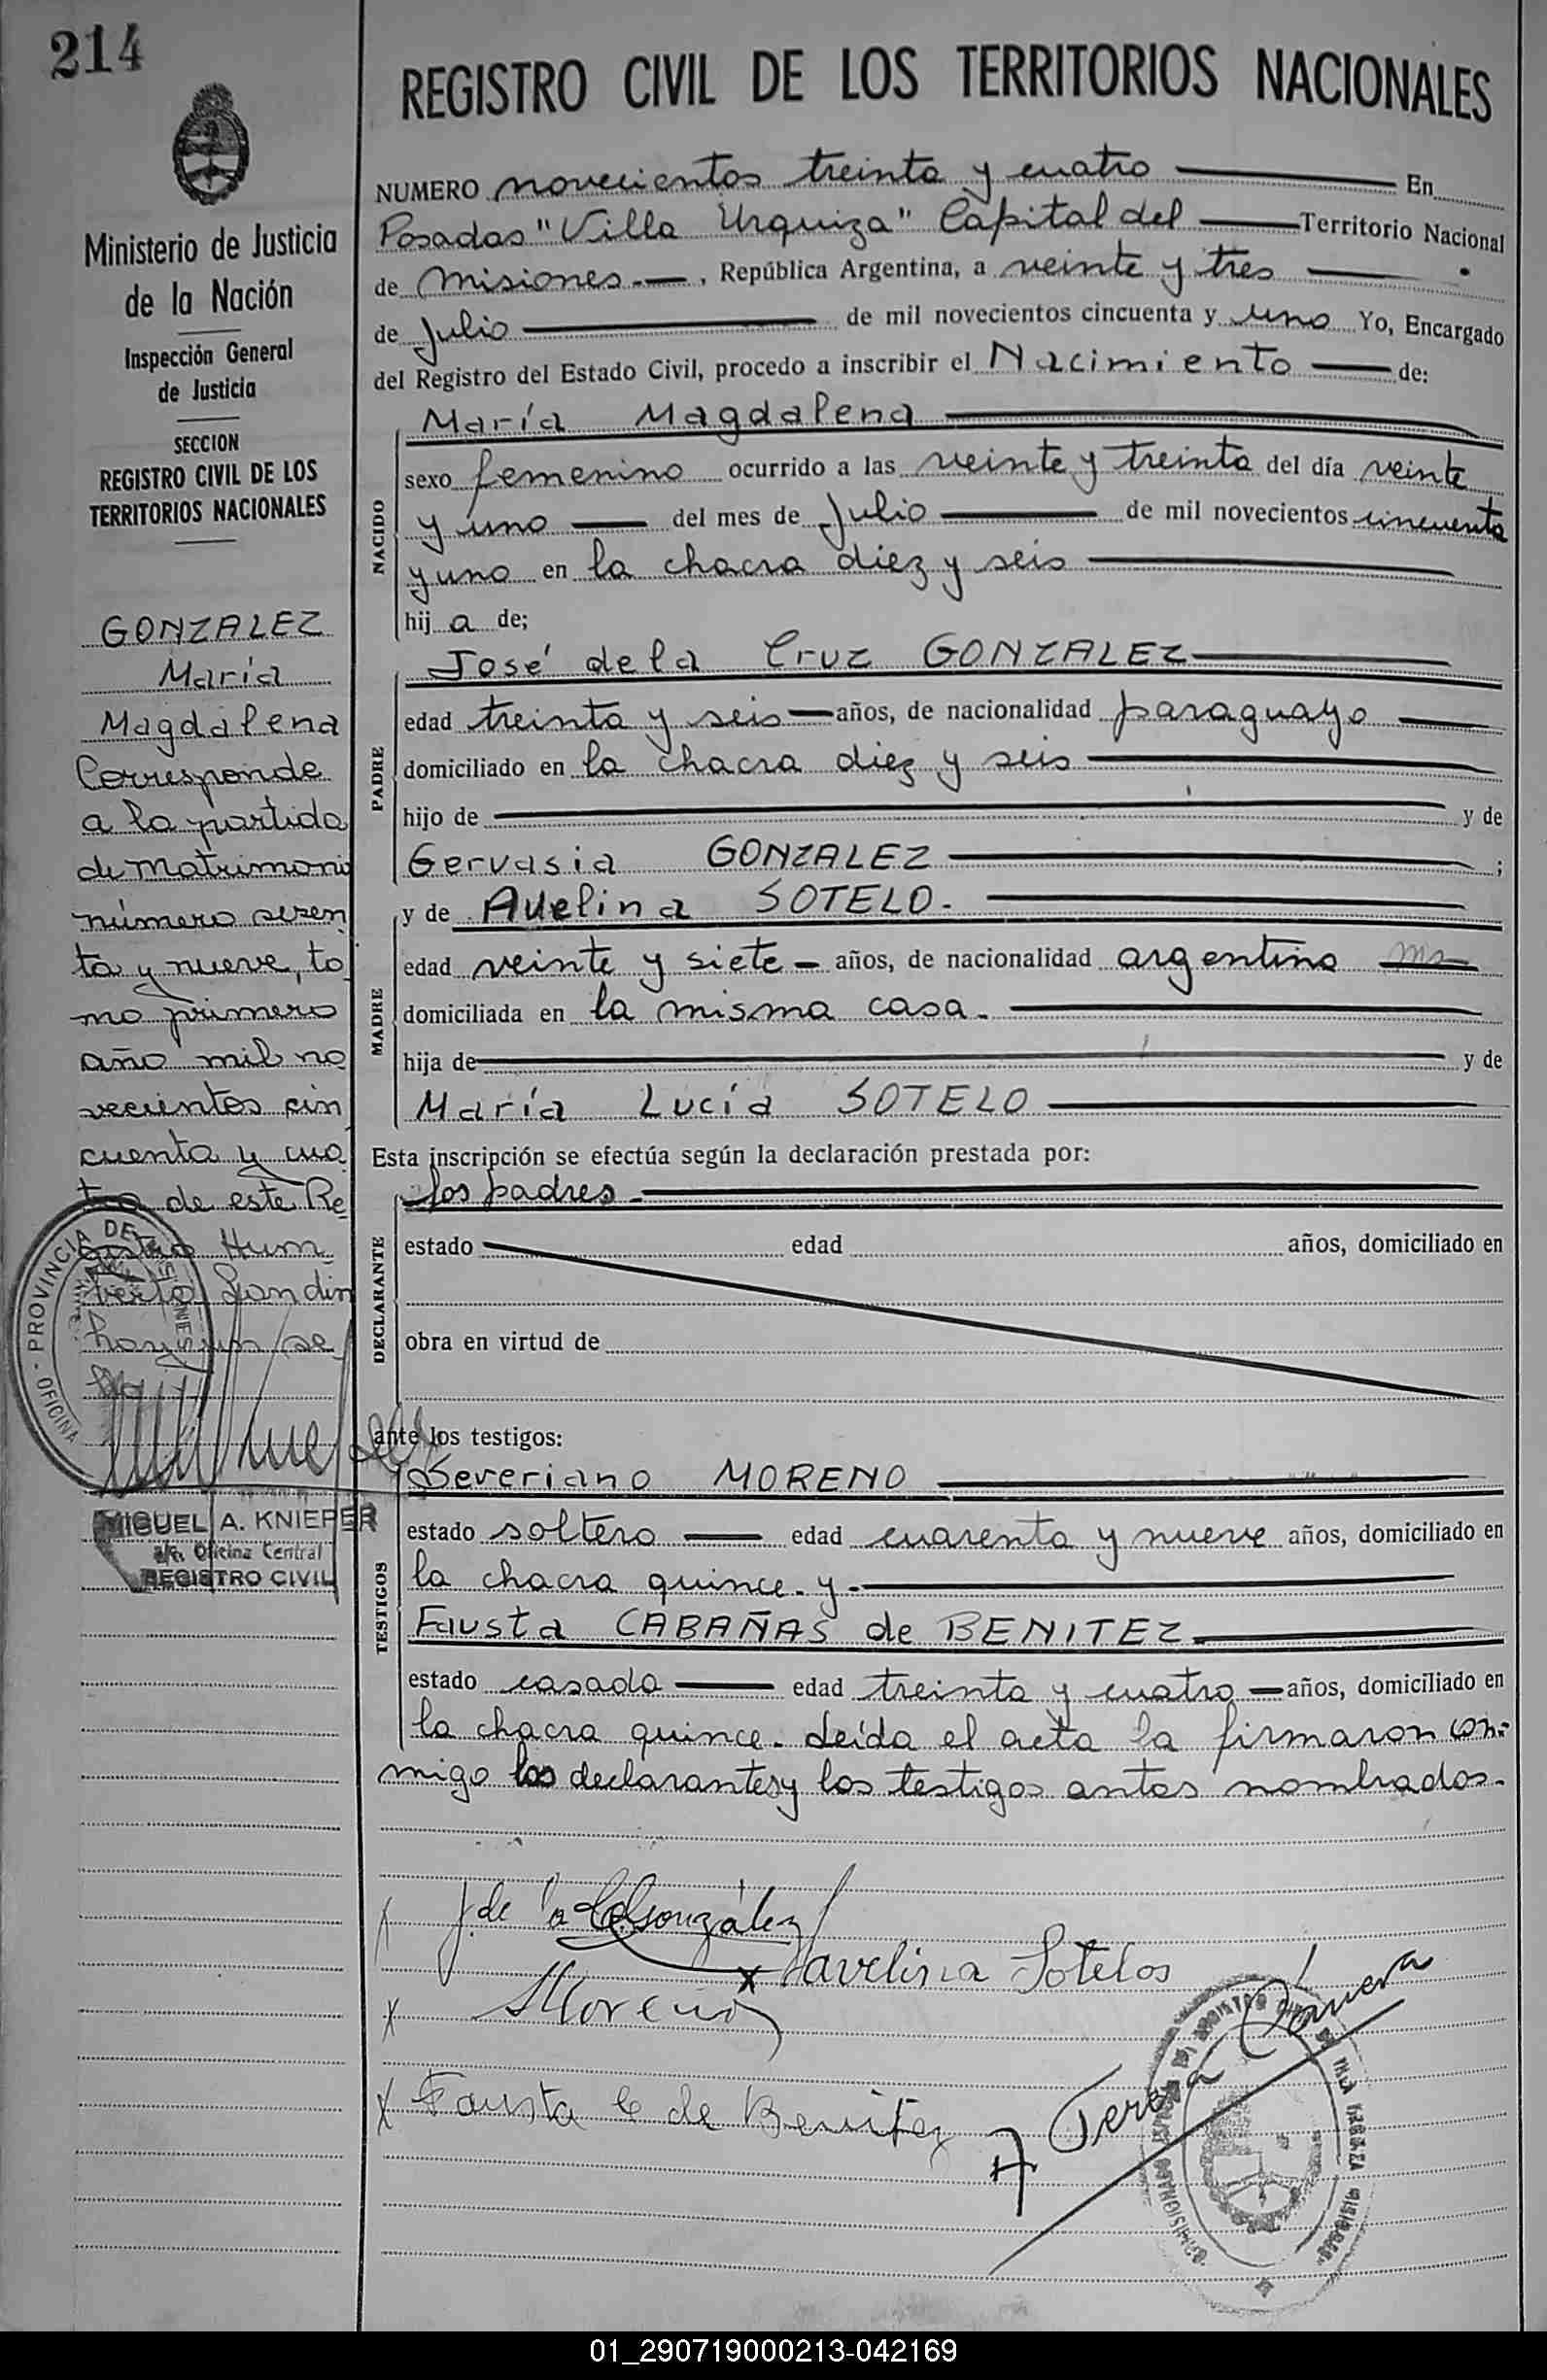 214
Ministerio de Justicia
de la Nación
Inspección General
de Justicia
SECCION
REGISTRO CIVIL DE LOS
TERRITORIOS NACIONALES
GONZALEZ
María
Magdalena
Corresponde
a la partida
de Matrimonio
número sesen
ta y nueve, to
mo primero
año mil no
vecientos cin
cuenta y cua
tro de este Re
gistro Hum
berto
PROVINCIA DE MISIONES
OFICINA
MIGUEL A. KNIEPER
a/c. Oficina Central
REGISTRO CIVIL
REGISTRO CIVIL DE LOS TERRITORIOS NACIONALES
NUMERO novecientos treinta y cuatro En
Posadas "Villa Urquiza" Capital del Territorio Nacional
de Misiones.-, República Argentina, a veinte y tres
de Julio de mil novecientos cincuenta y uno Yo, Encargado
del Registro del Estado Civil, procedo a inscribir el Nacimiento de:
María Magdalena
NACIDO
sexo femenino ocurrido a las veinte y treinta del día veinte
y uno del mes de Julio de mil novecientos cincuenta
y uno en la chacra diez y seis
hij a de;
PADRE
José de la Cruz GONZALEZ
edad treinta y seis años, de nacionalidad paraguayo
domiciliado en la chacra diez y seis
hijo de y de
Gervasia GONZALEZ ;
MADRE
y de Avelina SOTELO.
edad veinte y siete - años, de nacionalidad argentina
domiciliada en la misma casa.
hija de y de
María Lucía SOTELO
Esta inscripción se efectúa según la declaración prestada por:
DECLARANTE
los padres.
estado edad años, domiciliado en
obra en virtud de
ante los testigos:
TESTIGOS
Severiano MORENO
estado soltero edad cuarenta y nueve años, domiciliado en
la chacra quince. y.
Fausta CABAÑAS de BENITEZ.
estado casada edad treinta y cuatro años, domiciliado en
la chacra quince. Leída el acta la firmaron con-
migo los declarantes y los testigos antes nombrados.
J de la C González
x Havelina Sotelos
x SMoreno
x Fausta C de Benitez
A Teresa
01_290719000213-042169